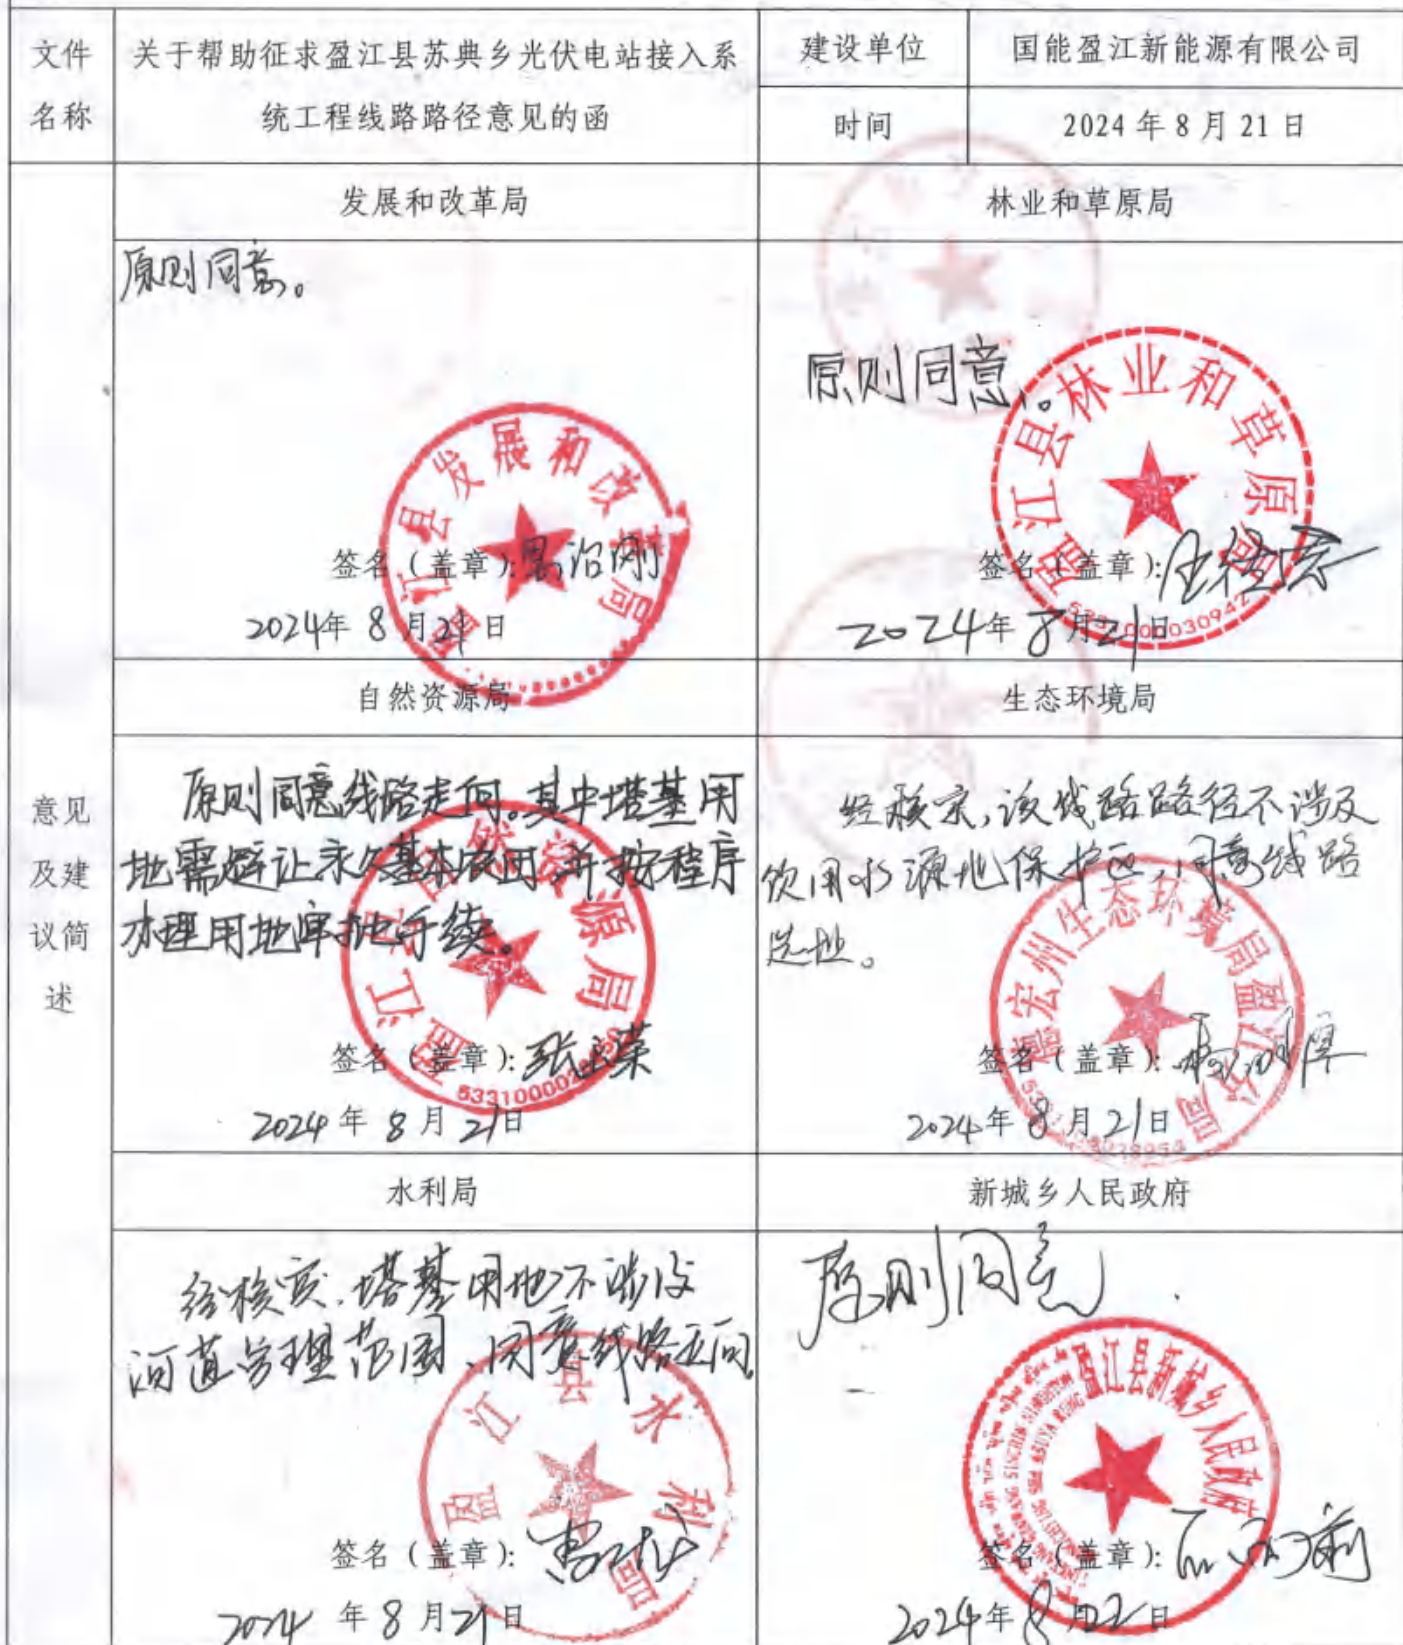 文件名称
关于帮助征求盈江县苏典乡光伏电站接入系
统工程线路路径意见的函
建设单位
国能盈江新能源有限公司
时间
2024年8月21日
意见
及建
议简
述
发展和改革局
原则同意。
盈江县发展和改革局
签名（盖章）：
2024年8月21日
林业和草原局
原则同意。
盈江县林业和草原局
签名（盖章）：
5331000030942
2024年8月21日
自然资源局
原则同意线路走向。其中塔基用
地需避让永久基本农田,并按程序
办理用地审批手续。
盈江县自然资源局
签名（盖章）：
2024年8月21日
生态环境局
经核实,该线路路径不涉及
饮用水源地保护区,同意线路
选址。
德宏州生态环境局盈江分局
签名（盖章）：
2024年8月21日
水利局
经核实、塔基用地不涉及
河道管理范围、同意线路走向。
盈江县水利局
签名（盖章）：
2024年8月21日
新城乡人民政府
原则同意
盈江县新城乡人民政府
签名（盖章）：
2024年8月22日